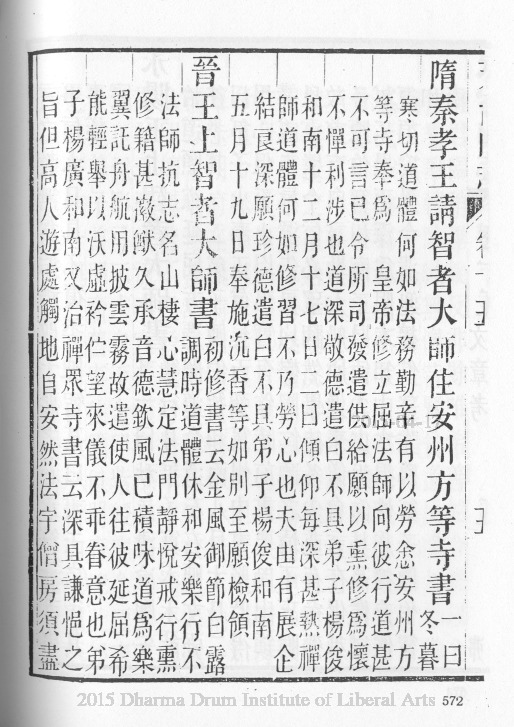 隋秦孝王請智者大師住安州方等寺書 一曰冬暮
寒切道體何如法務勤辛有以勞念安州方
等寺奉爲 皇帝修立屈法師向彼行道甚
不可言已令所司發遣供給願以熏修爲懷
不憚利涉也道深敬德遣白不具弟子楊俊
和南十二月十七日二曰傾仰每深甚熱禪
師道體何如修習不乃勞心也夫由有展企
結良深願珍德遣白不具弟子楊俊和南
五月十九日奉施沉香等如別至願檢領
晉王上智者大師書 初修書云金風御節白露
調時道體休和安樂行不
法師抗志名山棲心慧定法門靜悅戒行熏
修籍甚徽猷久承音德欽風已積味道爲樂
翼託舟航用披雲霧故遣使人往彼延屈希
能輕舉以沃虛衿佇望來儀不乖眷意也弟
子楊廣和南又治禪眾寺書云深具謙悒之
旨但高人遊處觸地自安然法宇僧房須盡
2015 Dharma Drum Institute of Liberal Arts 572